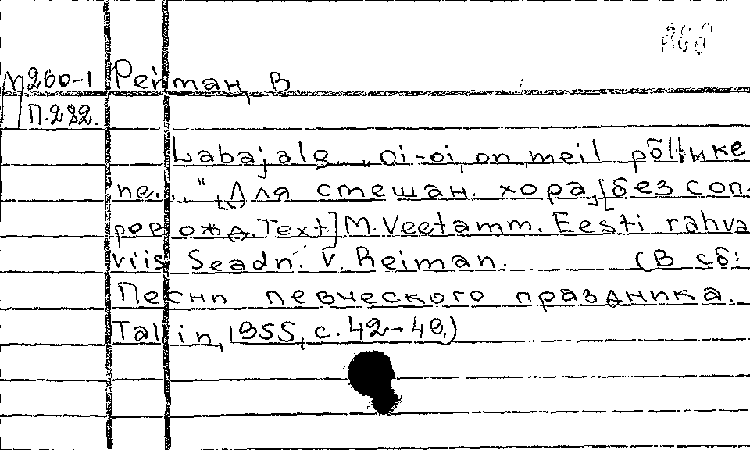 М260-1 Рейман, В
П.282.
Labajalg „Oi-oi, on meil põline
ne..." Для смешан. хора, [без соп-
ровожд. Text] M. Veetamm. Eesti rahva
viis Seadn. V. Reiman. (В сб:
Песни певческого праздника.
Tallin, 1955, с. 42-49.)